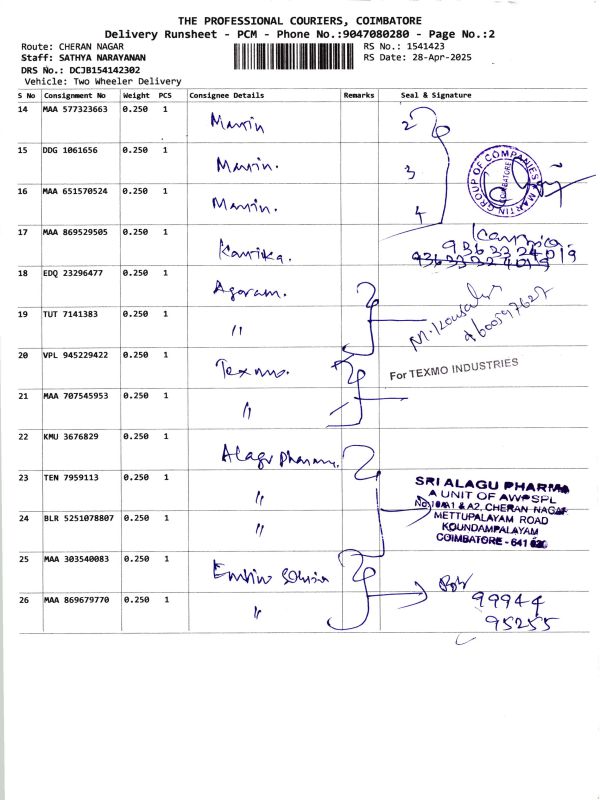 THE PROFESSIONAL COURIERS, COIMBATORE
Delivery Runsheet - PCM - Phone No.:9047080280 - Page No.:2
Route: CHERAN NAGAR
RS No.: 1541423
Staff: SATHYA NARAYANAN
RS Date: 28-Apr-2025
DRS No.: DCJB154142302
Vehicle: Two Wheeler Delivery
S No Consignment No Weight PCS Consignee Details Remarks Seal & Signature
14 MAA 577323663 0.250 1 Martin 2
15 DDG 1061656 0.250 1 Martin. 3
MARTIN GROUP OF COMPANIES
COIMBATORE
16 MAA 651570524 0.250 1 Martin. 4
17 MAA 869529505 0.250 1 Kartika.
18 EDQ 23296477 0.250 1 Agaram.
19 TUT 7141383 0.250 1 "
M. Kousalya
20 VPL 945229422 0.250 1 Texmo.
For TEXMO INDUSTRIES
21 MAA 707545953 0.250 1 "
22 KMU 3676829 0.250 1 Alagu pharma.
23 TEN 7959113 0.250 1 "
SRI ALAGU PHARMA
A UNIT OF AWPSPL
CHERAN NAGAR
24 BLR 5251078807 0.250 1 "
METTUPALAYAM ROAD
KOUNDAMPALAYAM
COIMBATORE - 641
25 MAA 303540083 0.250 1
26 MAA 869679770 0.250 1 "
99944
95255